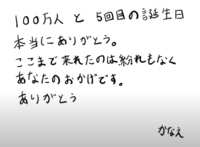 100万人 と 5回目の誕生日
本当にありがとう。
ここまで来れたのは紛れもなく
あなたのおかげです。
ありがとう
かなえ